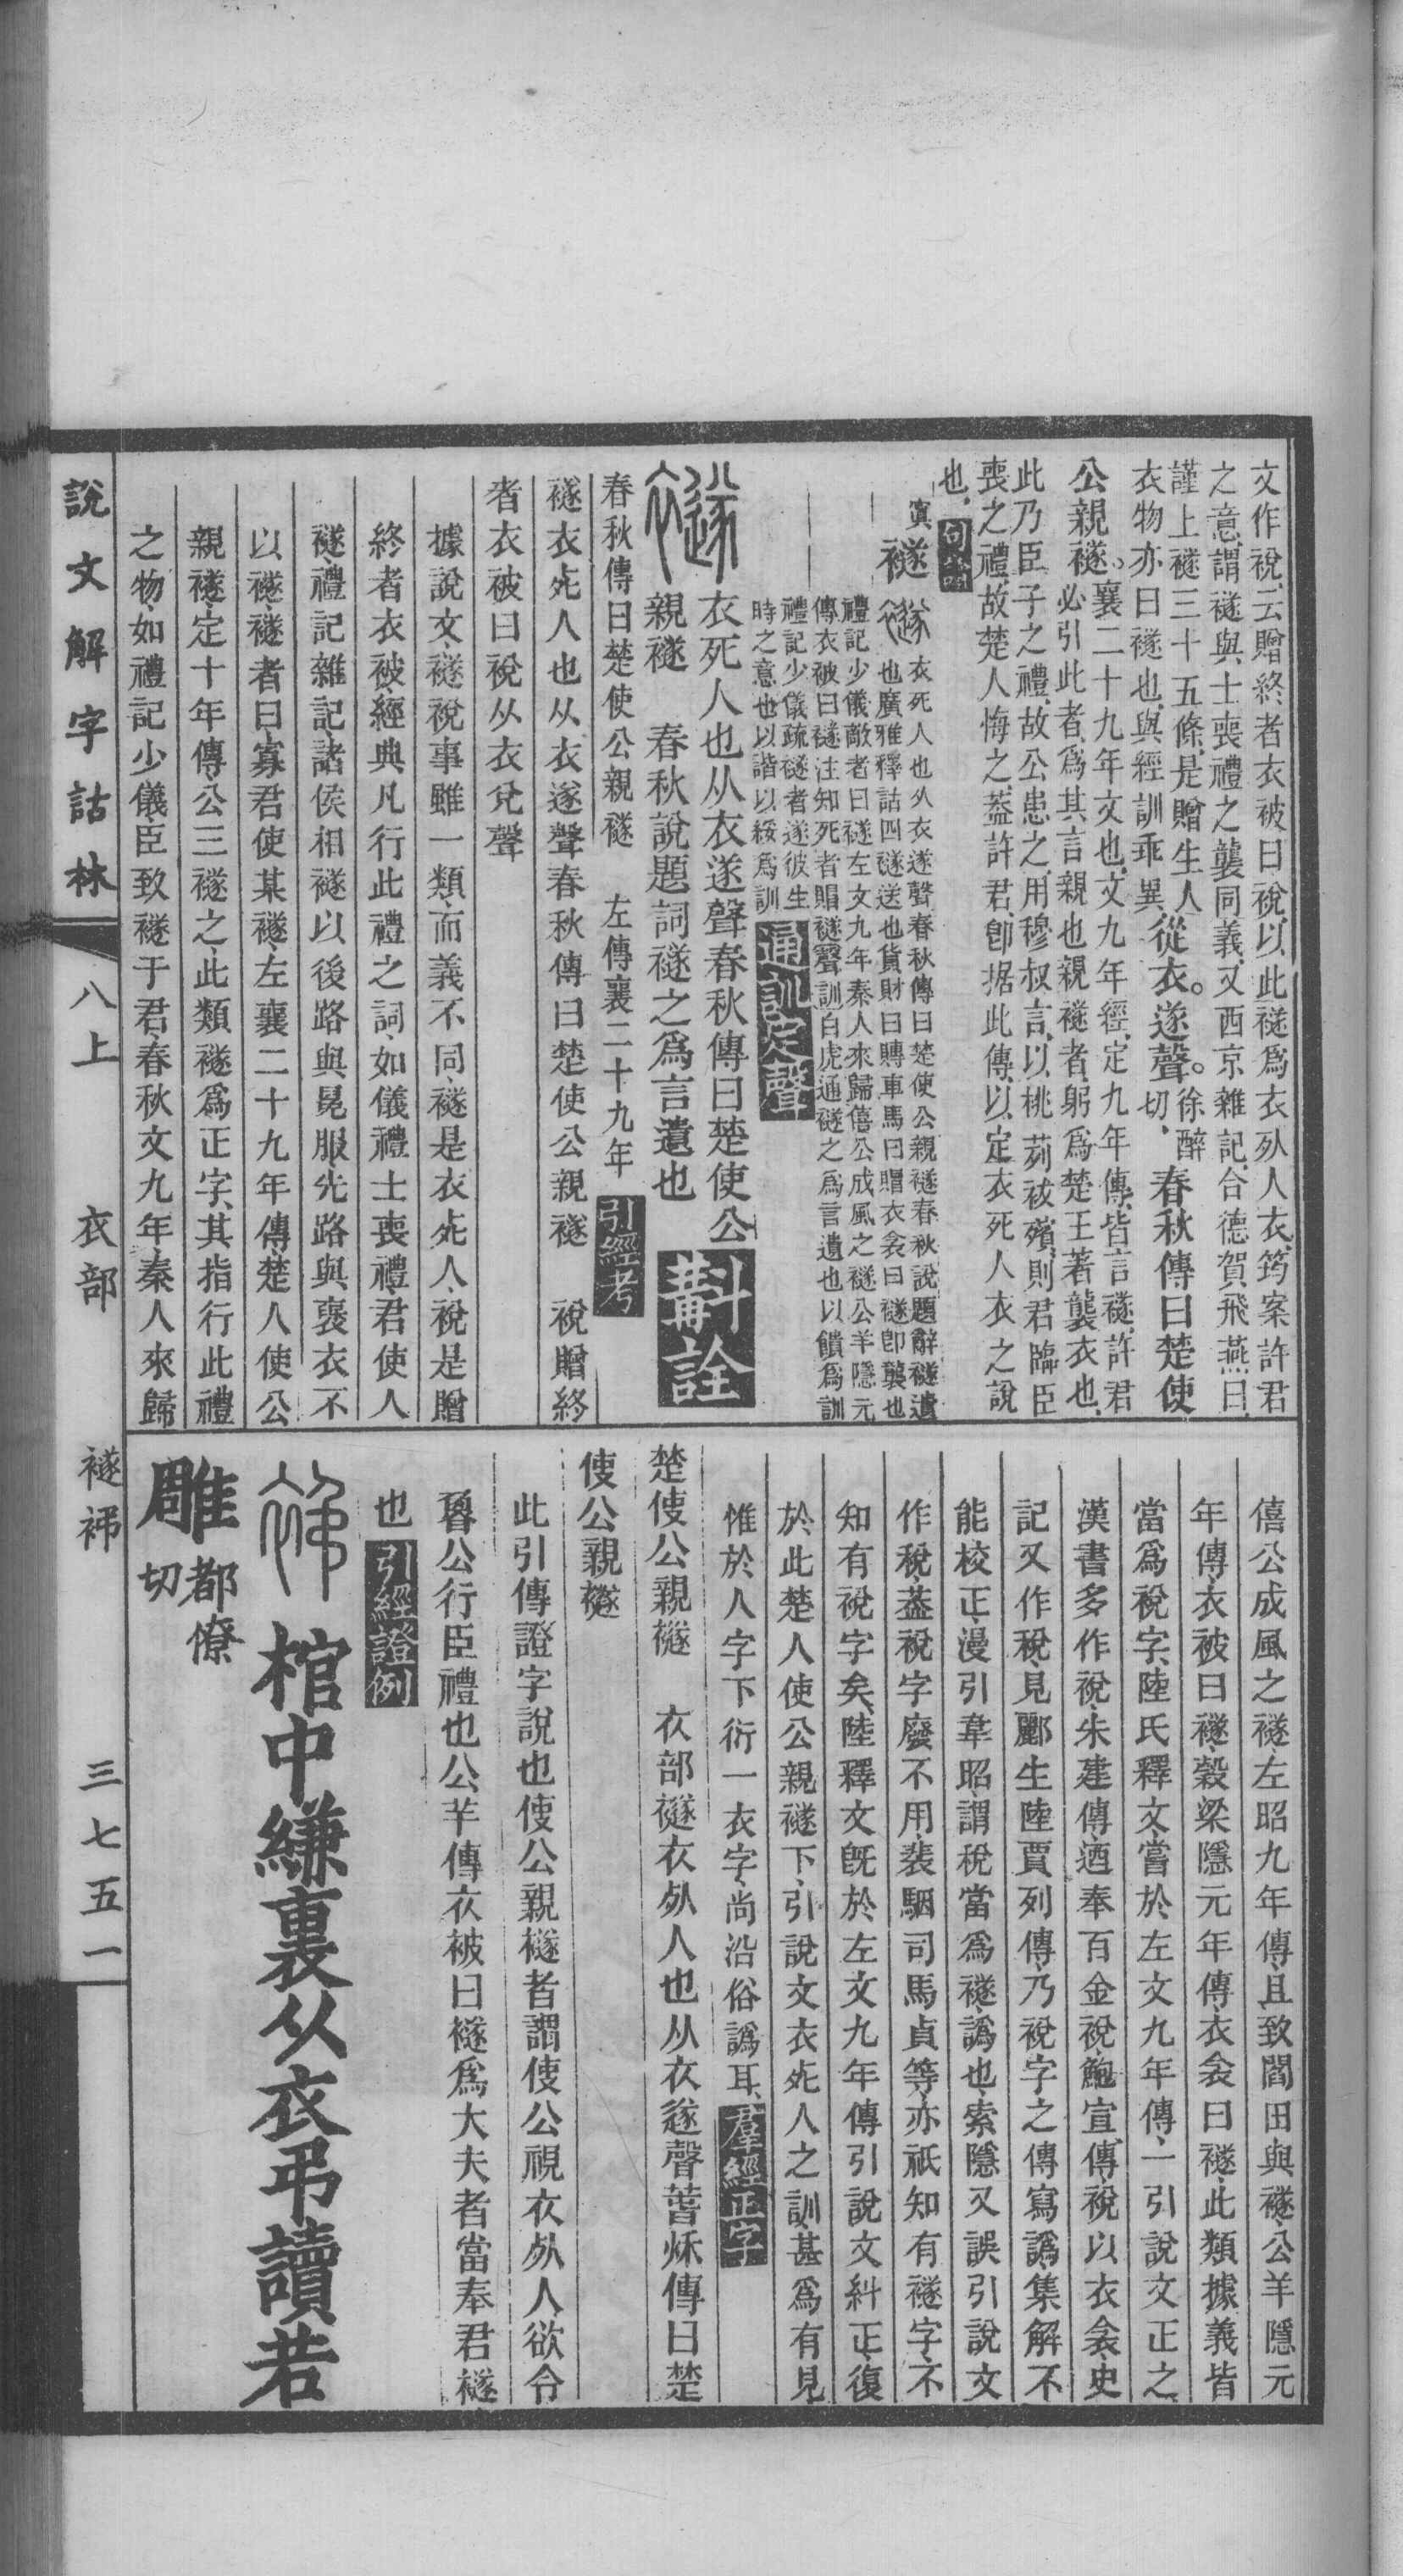 文作裞、云贈終者衣被曰裞、以此襚爲衣𣦸人衣、筠案許君
之意、謂襚與士喪禮之襲同義、又西京雜記、合德賀飛燕曰、
謹上襚三十五條、是贈生人
衣物亦曰襚也、與經訓乖異、從衣。遂聲。徐醉切、春秋傳曰楚使
公親襚。襄二十九年文也、文九年經、定九年傳、皆言襚、許君
必引此者、爲其言親也、親襚者、躬爲楚王著襲衣也、
此乃臣子之禮、故公患之、用穆叔言、以桃茢祓殯、則君臨臣
喪之禮、故楚人悔之、葢許君卽据此傳、以定衣死人衣之說
也、句讀
寘 襚 衣死人也从衣遂聲春秋傳曰楚使公親襚春秋說題辭襚遺
也廣雅釋詁四襚送也貨財曰賻車馬曰賵衣衾曰襚卽襲也
禮記少儀敵者曰襚左文九年秦人來歸僖公成風之襚公羊隱元
傳衣被曰襚注知死者賵襚聲訓白虎通襚之爲言遺也以饋爲訓
禮記少儀疏襚者遂彼生
時之意也以諧以綏爲訓 通訓定聲
衣死人也从衣遂聲春秋傳曰楚使公
親襚　春秋說題詞襚之爲言遺也 斠詮
春秋傳曰楚使公親襚　左傳襄二十九年 引經考
襚衣死人也从衣遂聲春秋傳曰楚使公親襚　裞贈終
者衣被曰裞从衣兌聲
據說文、襚裞事雖一類、而義不同、襚是衣死人、裞是贈
終者衣被、經典凡行此禮之詞、如儀禮士喪禮、君使人
襚、禮記雜記、諸侯相襚以後路與冕服、先路與襃衣不
以襚、襚者曰、寡君使某襚、左襄二十九年傳、楚人使公
親襚、定十年傳、公三襚之、此類襚爲正字、其指行此禮
之物、如禮記少儀、臣致襚于君、春秋文九年、秦人來歸
僖公成風之襚、左昭九年傳、且致閻田與襚、公羊隱元
年傳、衣被曰襚、穀梁隱元年傳、衣衾曰襚、此類據義皆
當爲裞字、陸氏釋文、嘗於左文九年傳、一引說文正之、
漢書多作裞、朱建傳、迺奉百金裞、鮑宣傳、裞以衣衾、史
記又作稅、見酈生陸賈列傳、乃裞字之傳寫譌、集解不
能校正、漫引韋昭、謂稅當爲襚、譌也、索隱又誤引說文
作稅、葢裞字廢不用、裴駰司馬貞等、亦祇知有襚字、不
知有裞字矣、陸釋文旣於左文九年傳引說文糾正、復
於此楚人使公親襚下、引說文衣死人之訓、甚爲有見、
惟於人字下衍一衣字、尚沿俗譌耳、羣經正字
楚使公親襚　衣部襚衣𣦸人也从衣遂聲萅秌傳曰楚
使公親襚
此引傳證字說也使公親襚者謂使公視衣𣦸人欲令
魯公行臣禮也公羊傳衣被曰襚爲大夫者當奉君襚
也 引經證例
棺中縑裏从衣弔讀若
雕 都僚切
說文解字詁林 八上　衣部　襚𧘨　三七五一